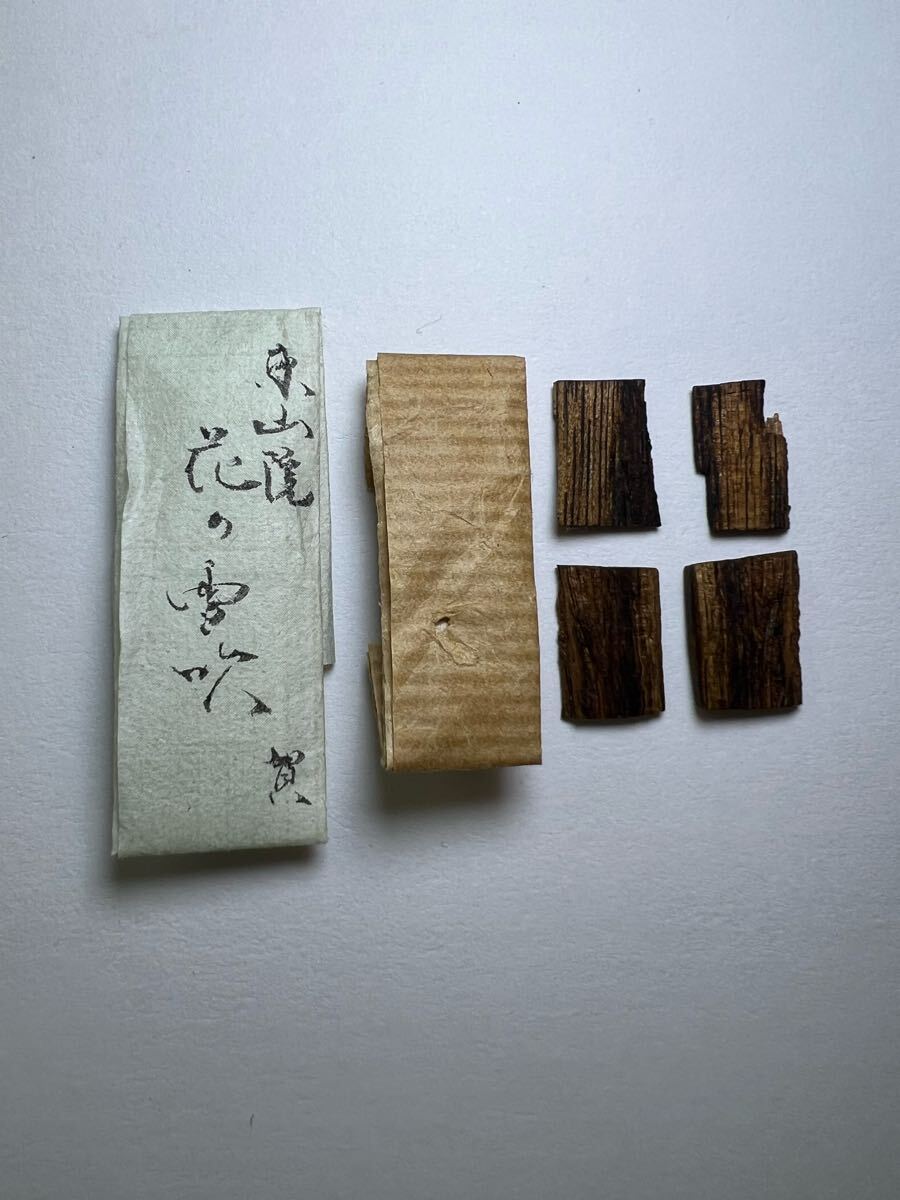 東山院
花の雪吹
賀